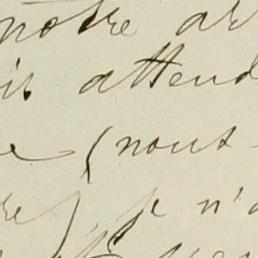 notre ar
ir attend
e (nous-
re) je n'a